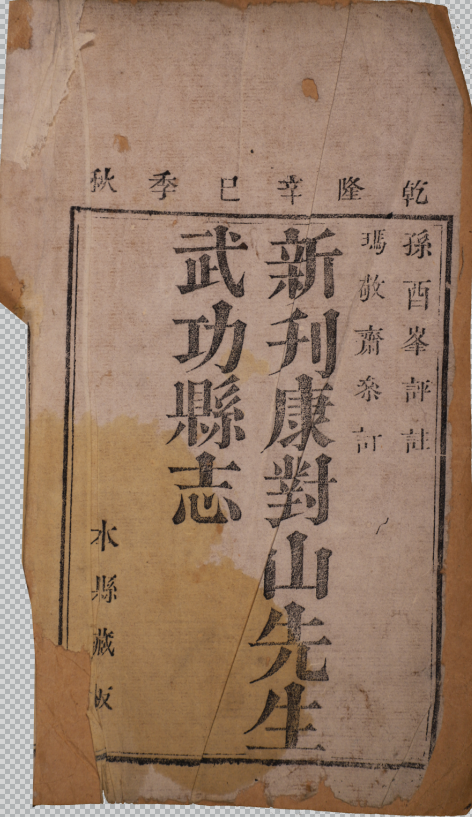 乾隆辛巳季秋
孫酉峯評註
瑪敬齋叅訂
新刊康對山先生
武功縣志
本縣藏板